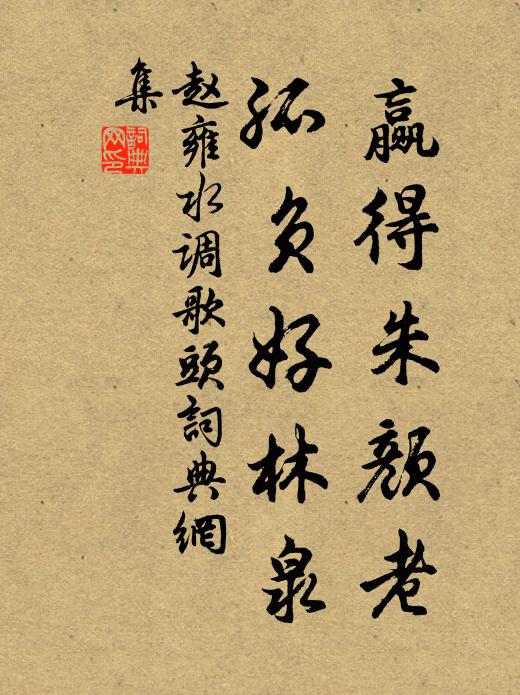 赢得朱颜老
孤负好林泉
赵雍水调歌頭詞典網
集
詞典
网印